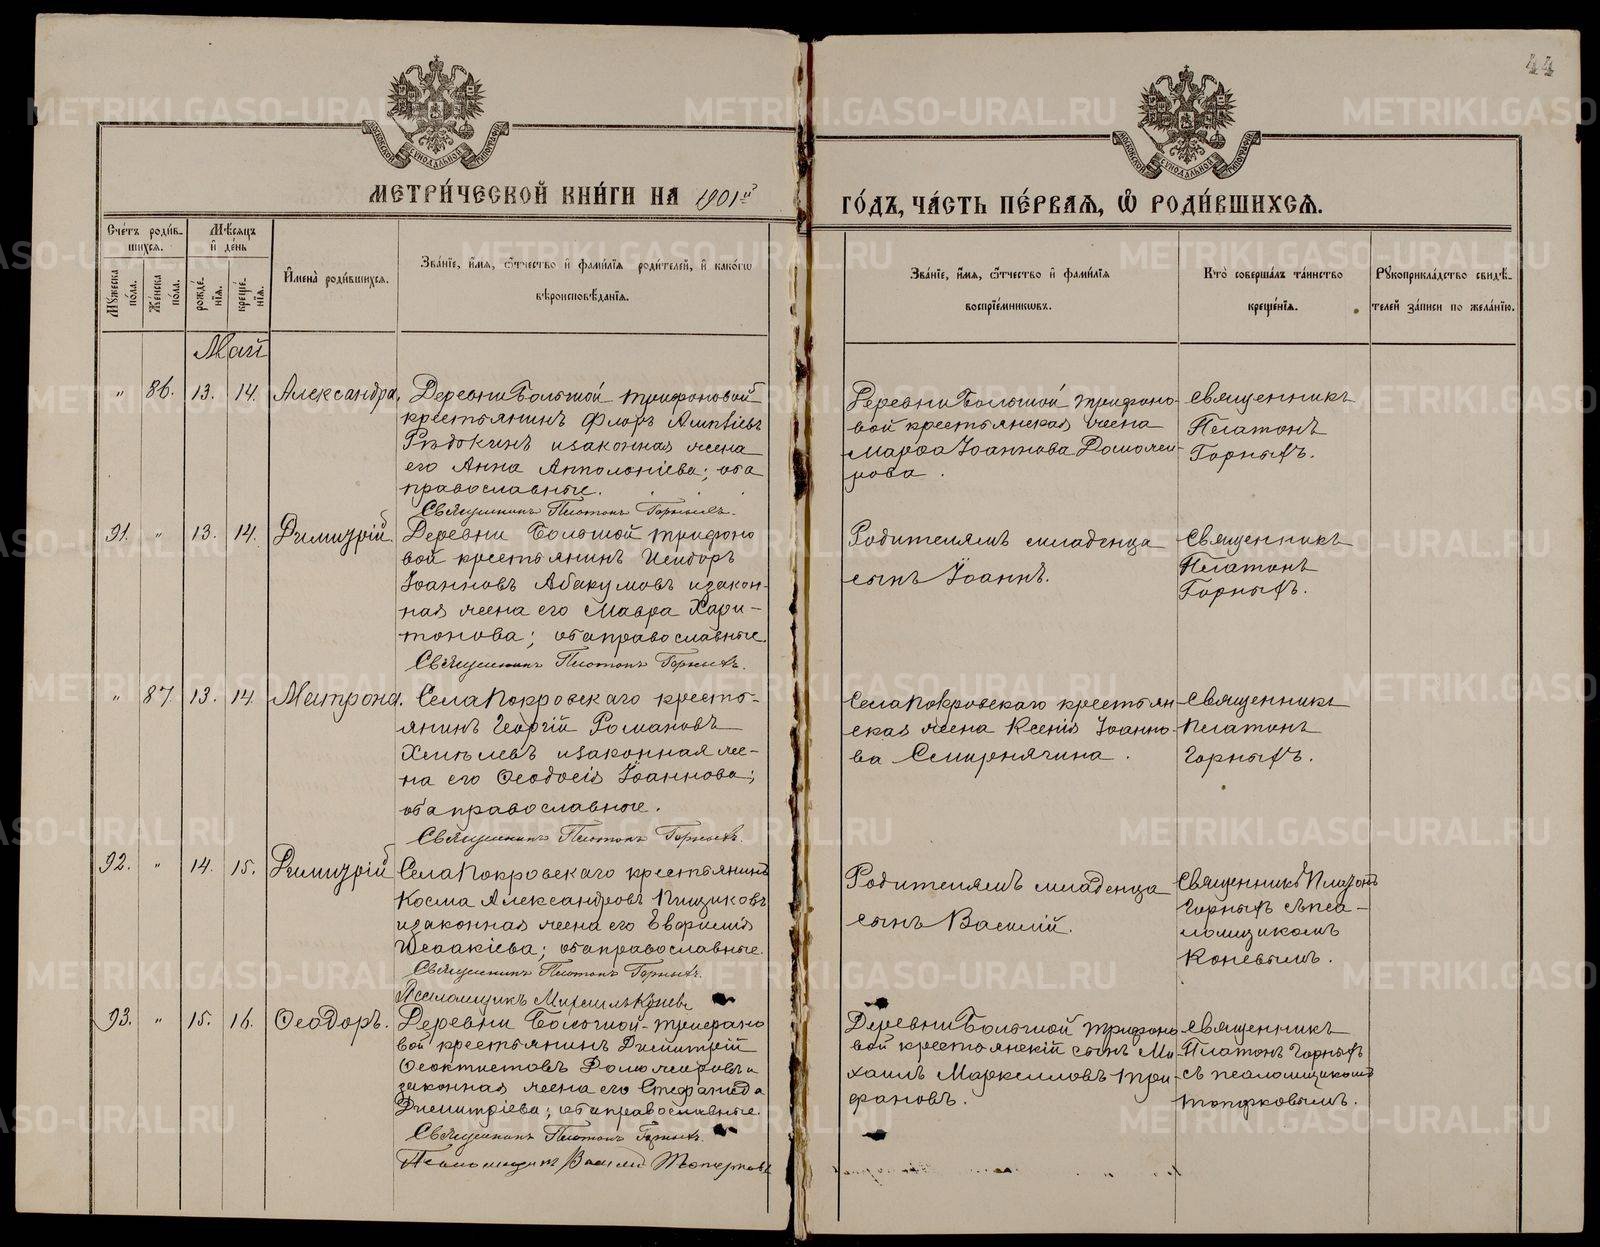 44
МОСКОВСКОЙ СѴНОДАЛЬНОЙ ТИПОГРАФІИ
МОСКОВСКОЙ СѴНОДАЛЬНОЙ ТИПОГРАФІИ
МЕТРИ́ЧЕСКОЙ КНИ́ГИ НА 1901й
ГО́ДЪ, ЧА́СТЬ ПЕ́РВАѦ, Ѡ РОДИ́ВШИХСѦ.
Сче́тъ роди́вшихся.
Мѣ́сяцъ и де́нь
Мꙋжеска по́ла.
Же́нска по́ла.
рожде́нїя.
креще́нїя.
И҆мена̀ роди́вшихся.
Зва́нїе, и҆́мя, ѻ҆́тчество и҆ фами́лїя роди́телей, и҆ како́гѡ
вѣроисповѣ́данїя.
Зва́нїе, и҆́мя, ѻ҆́тчество и҆ фами́лїя
воспрїе́мникѡвъ.
Кто̀ соверша́лъ та́инство
креще́нїя.
Рꙋкоприкла́дство свидѣ́телей за́писи по жела́нїю.
Май
" 86. 13. 14. Александра.
Деревни Большой Трифоновой
крестьянинъ Флоръ
и законная жена
его Анна Апполоніева; оба
православные.
Священникъ Платонъ Горныхъ.
Деревни Большой Трифоно-
вой крестьянская жена
Марѳа Іоаннова Доможи-
рова.
Священникъ
Платонъ
Горныхъ.
91. " 13. 14. Димитрій
Деревни Большой Трифоно
вой крестьянинъ Исидоръ
Іоанновъ Абакумовъ и закон-
ная жена его Мавра Хари-
тонова; оба православные.
Священникъ Платонъ Горныхъ.
Родителямъ младенца
сынъ Іоаннъ.
Священникъ
Платонъ
Горныхъ.
" 87. 13. 14. Матрона.
Села Покровскаго кресть-
янинъ Георгій Романовъ
Хмѣлевъ и законная же-
на его Ѳеодосія Іоаннова;
оба православные.
Священникъ Платонъ Горныхъ.
Села Покровскаго крестьян-
ская жена Ксенія Іоанно-
ва Смирнягина.
Священникъ
Платонъ
Горныхъ.
92. " 14. 15. Димитрій
Села Покровскаго крестьянинъ
Косма Александровъ Пищиковъ
и законная жена его Евфимія
Исаакіева; оба православные.
Священникъ Платонъ Горныхъ.
Псаломщикъ Михаилъ Коневъ
Родителямъ младенца
сынъ Василій.
Священникъ Платонъ
Горныхъ съ пса-
ломщикомъ
Коневымъ.
93. " 15. 16. Ѳеодоръ.
Деревни Большой-Трифоно
вой крестьянинъ Димитрій
Ѳеоктистовъ Доможировъ и
законная жена его Стефанида
Димитріева; оба православные.
Священникъ Платонъ Горныхъ.
Псаломщикъ Василій Топорковъ
Деревни Большой Трифоно
вой крестьянскій сынъ Ми-
хаилъ Маркелловъ Три-
фановъ.
Священникъ
Платонъ Горныхъ
съ псаломщикомъ
Топорковымъ.
METRIKI.GASO-URAL.RU